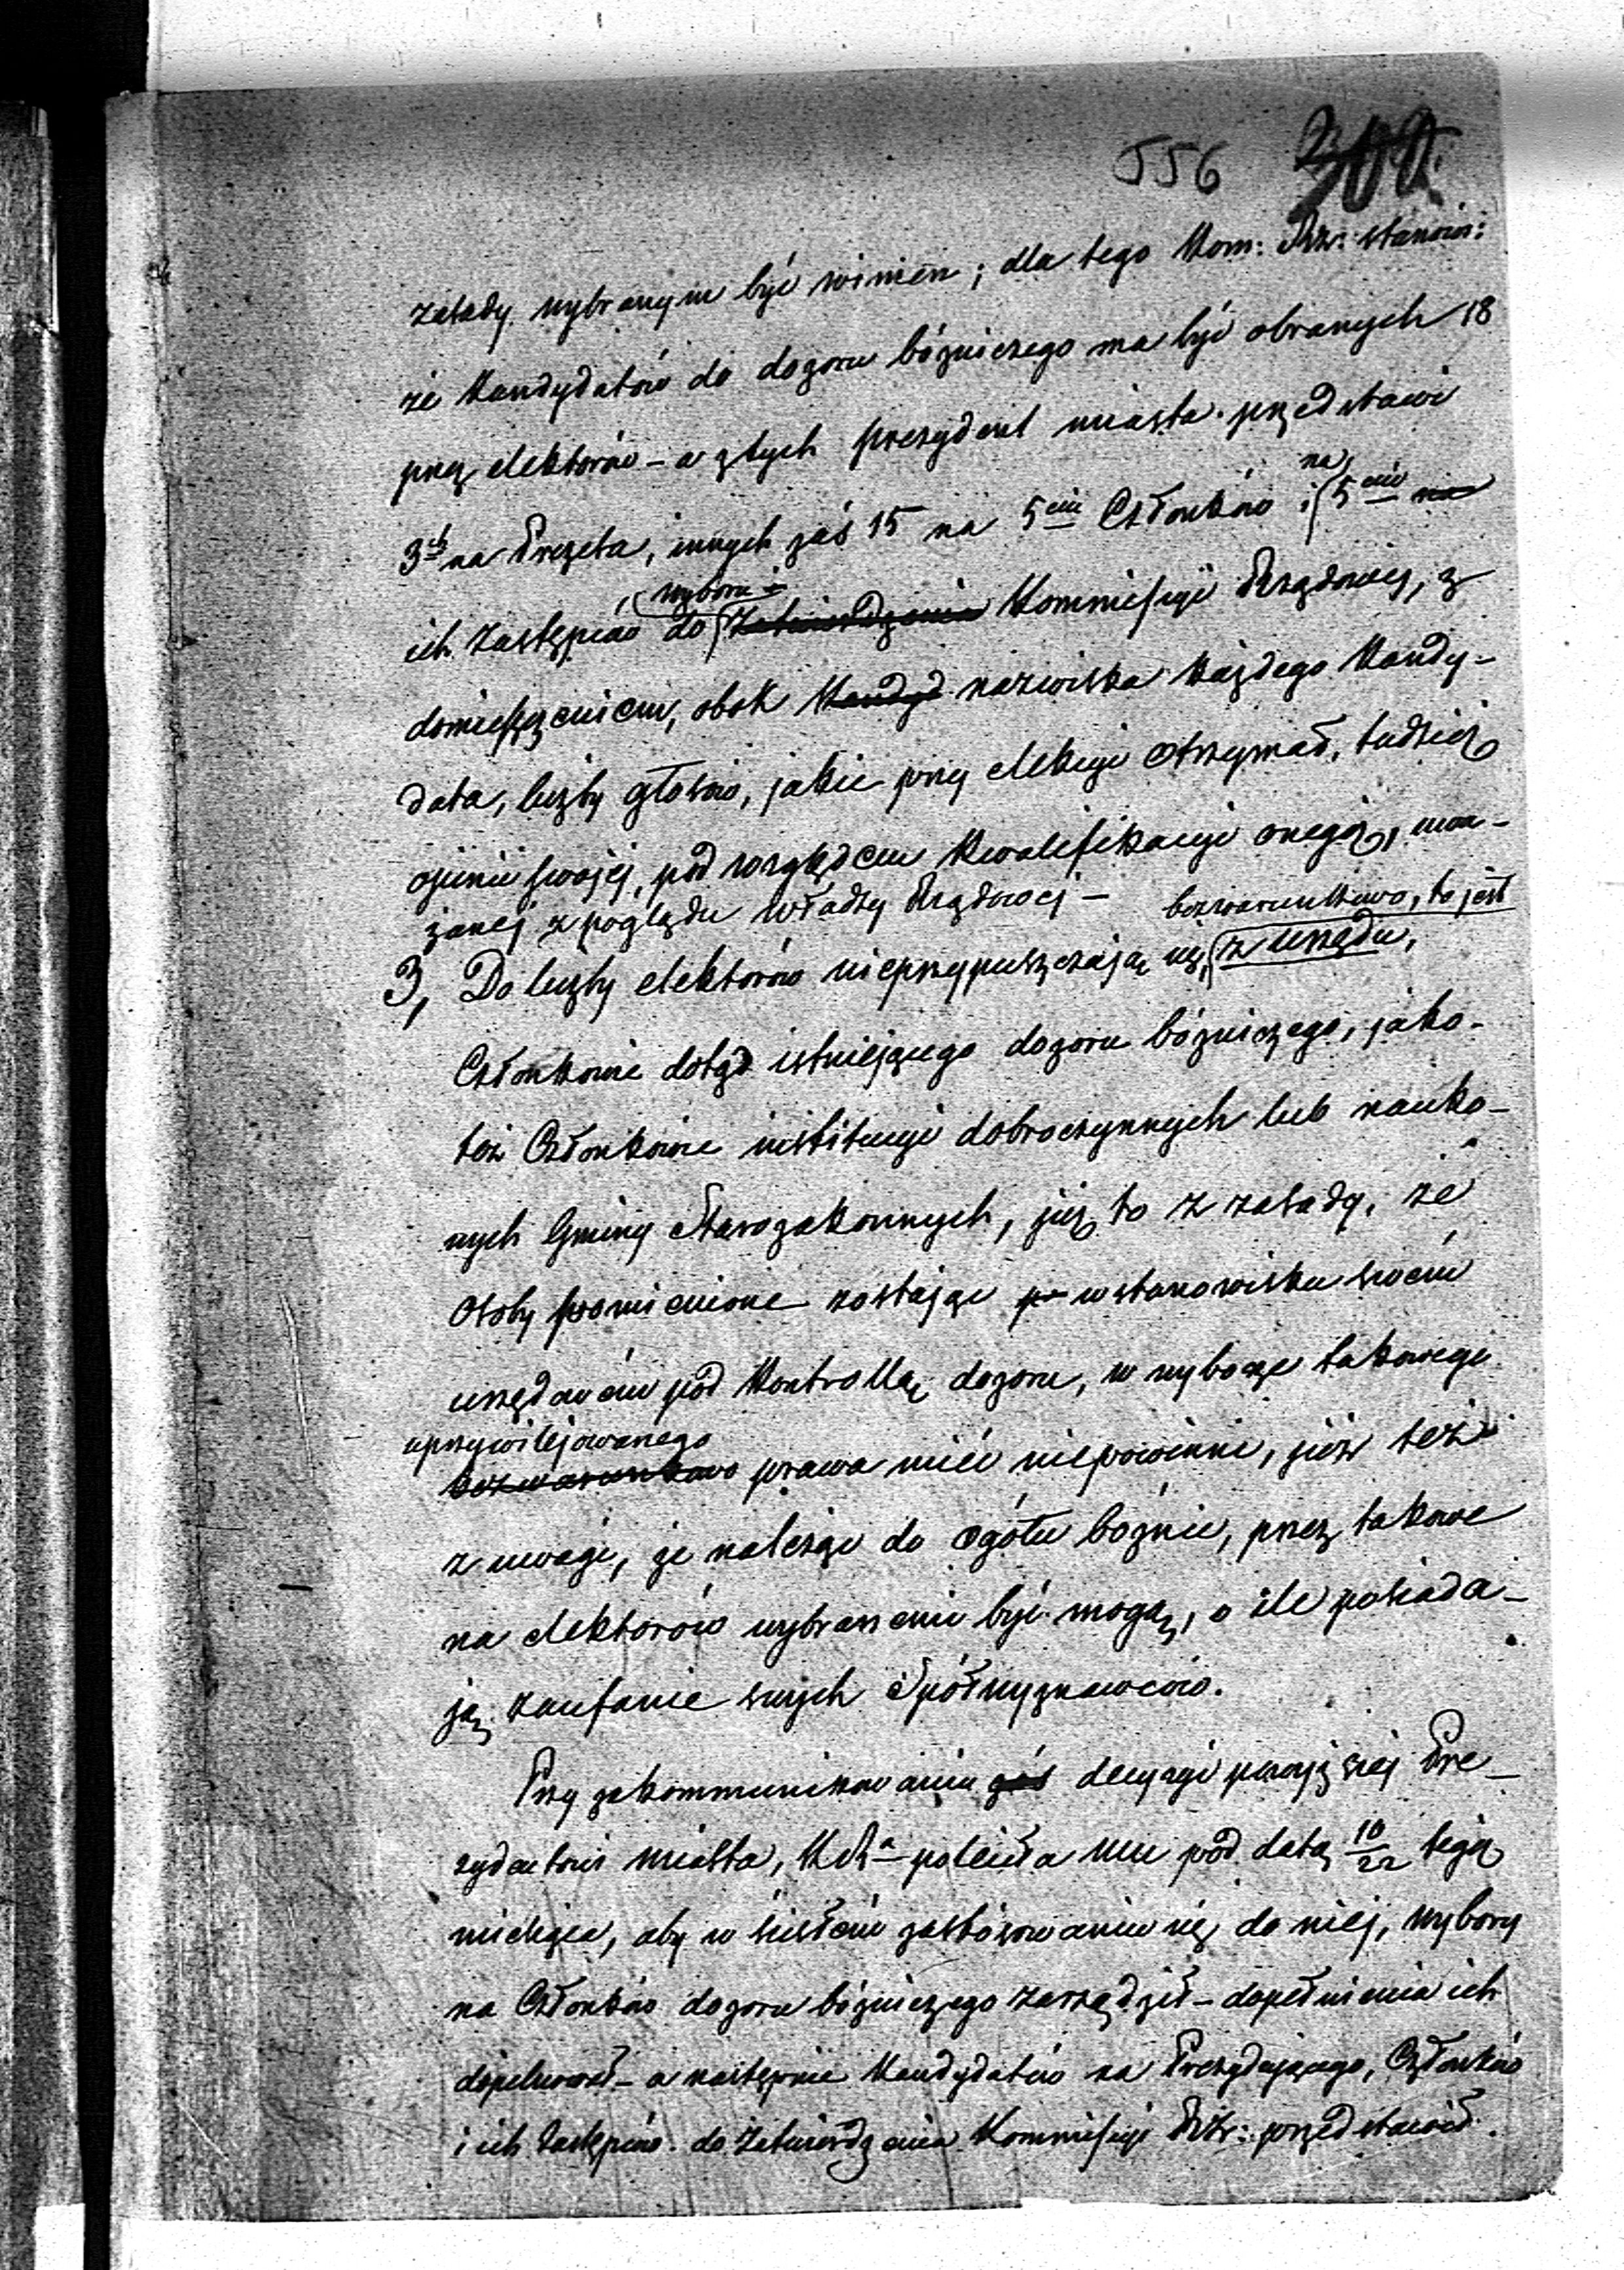 556 300.
zasady wybranym być winien; dla tego Kom: Rz: stanowi:
że Kandydatów do dozoru bóżniczego ma być obranych 18
przez elektorów – a z tych prezydent miasta przedstawi
3ch na Prezesa, innych zaś 15 na 5ciu Członków i na 5ciu na
wyboru i
ich Zastępców do Zatwierdzenia Kommissyi Rządowej, z
domieszczeniem, obok Kandyd nazwiska każdego Kandy-
data, liczby głosów, jakie przy elekcyi otrzymał, tudzież
opinii swojej, pod względem kwalifikacyi onegoż, uwa-
żanej z poglądu Władzy Rządowej –
bezwarunkowo, to jest
3, Do liczby elektorów nieprzypuszczają się, z urzędu,
Członkowie dotąd istniejącego dozoru bóżniczego, jako-
też Członkowie instytucyi dobroczynnych lub nauko-
wych Gminy Starozakonnych, już to z zasady, że
Osoby pomienione zostając w stanowisku swém
urzędowém pod Kontrollą dozoru, w wyborze takowego
uprzywilejowanego
bezwarunkowo prawa mieć niepowinni, już też
z uwagi, że należąc do ogółu bóżnic, przez takowe
na elektorów wybranemi być mogą, o ile posiada-
ją zaufanie swych Spółwyznawców.
Przy zakommunikowaniu zaś decyzyi powyższej Pre-
zydentowi miasta, KRa poleciła mu pod datą 10/22 tegoż
miesiąca, aby w ścisłém zastósowaniu się do niej, wybory
na Członków dozoru bóżniczego zarządził – dopełnienia ich
dopilnował – a następnie Kandydatów na Prezydującego, Członków
i ich Zastępców do Zatwierdzenia Kommissyi Rzr: przedstawił.